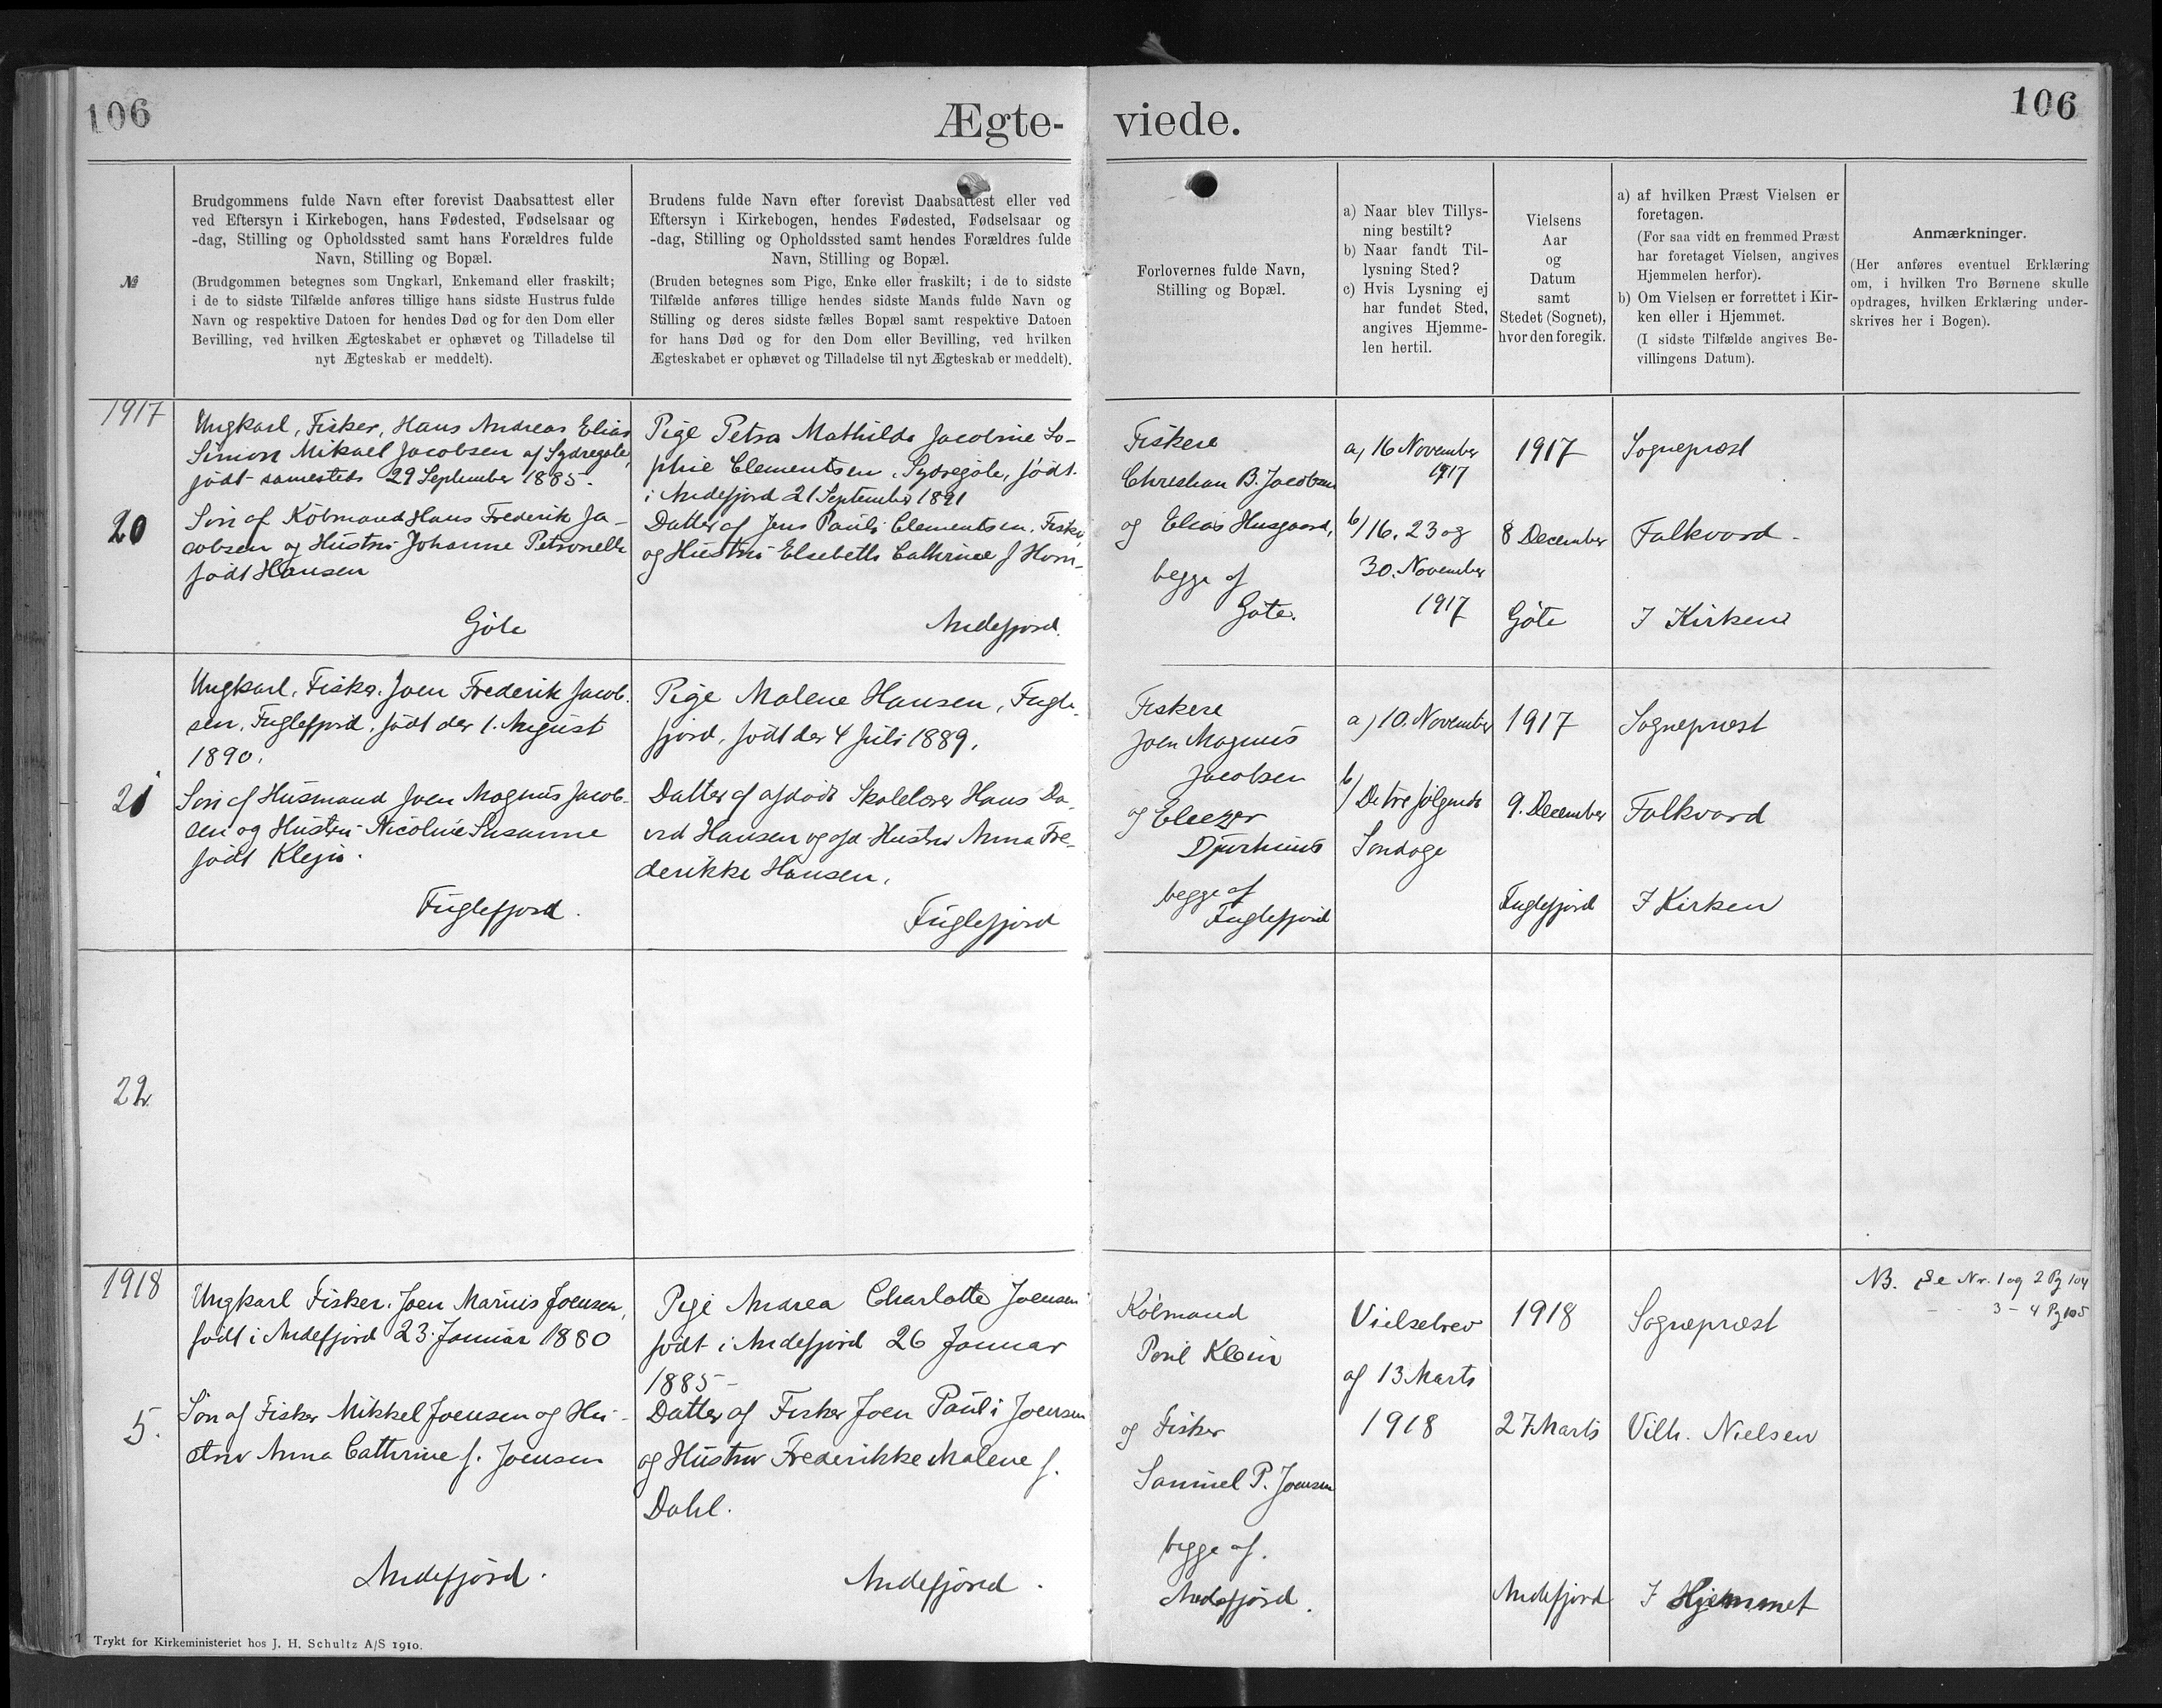 106
Ægte-
viede.
106
№
Brudgommens fulde Navn efter forevist Daabsattest eller
ved Eftersyn i Kirkebogen, hans Fødested, Fødselsaar og
-dag, Stilling og Opholdssted samt hans Forældres fulde
Navn, Stilling og Bopæl.
(Brudgommen betegnes som Ungkarl, Enkemand eller fraskilt;
i de to sidste Tilfælde anføres tillige hans sidste Hustrus fulde
Navn og respektive Datoen for hendes Død og for den Dom eller
Bevilling, ved hvilken Ægteskabet er ophævet og Tilladelse til
nyt Ægteskab er meddelt).
Brudens fulde Navn efter forevist Daabsattest eller ved
Eftersyn i Kirkebogen, hendes Fødested, Fødselsaar og
-dag, Stilling og Opholdssted samt hendes Forældres fulde
Navn, Stilling og Bopæl.
(Bruden betegnes som Pige, Enke eller fraskilt; i de to sidste
Tilfælde anføres tillige hendes sidste Mands fulde Navn og
Stilling og deres sidste fælles Bopæl samt respektive Datoen
for hans Død og for den Dom eller Bevilling, ved hvilken
Ægteskabet er ophævet og Tilladelse til nyt Ægteskab er meddelt).
Forlovernes fulde Navn,
Stilling og Bopæl.
a) Naar blev Tillys-
ning bestilt?
b) Naar fandt Til-
lysning Sted?
c) Hvis Lysning ej
har fundet Sted,
angives Hjemme-
len hertil.
Vielsens
Aar
og
Datum
samt
Stedet (Sognet),
hvor den foregik.
a) af hvilken Præst Vielsen er
foretagen.
(For saa vidt en fremmed Præst
har foretaget Vielsen, angives
Hjemmelen herfor).
b) Om Vielsen er forrettet i Kir-
ken eller i Hjemmet.
(I sidste Tilfælde angives Be-
villingens Datum).
Anmærkninger.
(Her anføres eventuel Erklæring
om, i hvilken Tro Børnene skulle
opdrages, hvilken Erklæring under-
skrives her i Bogen).
1917
20
Ungkarl, Fisker, Hans Andreas Elias
Simon Mikael Jacobsen af Sydregøte,
født samesteds 29 September 1885.
Søn af Købmand Hans Frederik Ja-
cobsen og Hustru Johanne Petronelle
født Hansen
Gøte
Pige Petra Mathilde Jacobine So-
phie Clementsen, Sydregøte, født
i Andefjord 21 September 1891
Datter af Jens Pauli Clementsen, Fisker,
og Hustru Elsebeth Cathrine f
Andefjord.
Fiskere
Christian B. Jacobsen
og Elias Husgaard,
begge af
Gøte.
a) 16 November
1917
b) 16, 23 og
30. November
1917
1917
8 December
Gøte
Sognepræst
Falkvard.
I Kirken
21
Ungkarl, Fisker, Joen Frederik Jacob-
sen, Fuglefjord, født der 1. August
1890.
Søn af Husmand Joen Magnus Jacob-
sen og Hustru Nicoline Susanne
født Klejn.
Fuglefjord.
Pige Malene Hansen, Fugle-
fjord, født der 4 Juli 1889.
Datter af afdøde Skolelærer Hans Da-
vid Hansen og afd. Hustru Anna Fre-
derikke Hansen.
Fuglefjord
Fiskere
Joen Magnus
Jacobsen
og Eliezer
Djurhuus
begge af
Fuglefjord
a) 10. November
b) De tre følgende
Søndage
1917
9. December
Fuglefjord
Sognepræst
Falkvard
I Kirken
22
1918
5.
Ungkarl Fisker. Joen Marius Joensen,
født i Andefjord 23. Januar 1880
Søn af Fisker Mikkel Joensen og Hu-
stru Anna Cathrine f. Joensen
Andefjord.
Pige Andrea Charlotte Joensen
født i Andefjord 26 Januar
1885-
Datter af Fisker Joen Pauli Joensen
og Hustru Frederikke Malene f.
Dahl.
Andefjord.
Købmand
Poul Klein
og Fisker
Samuel P. Joensen
begge af.
Andefjord.
Vielsebrev
af 13 Marts
1918
1918
27 Marts
Andefjord
Sognepræst
Vilh. Nielsen
I Hjemmet
NB. Se Nr. 1 og 2 Pg 104
- - 3 - 4 Pg 105
Trykt for Kirkeministeriet hos J. H. Schultz A/S 1910.